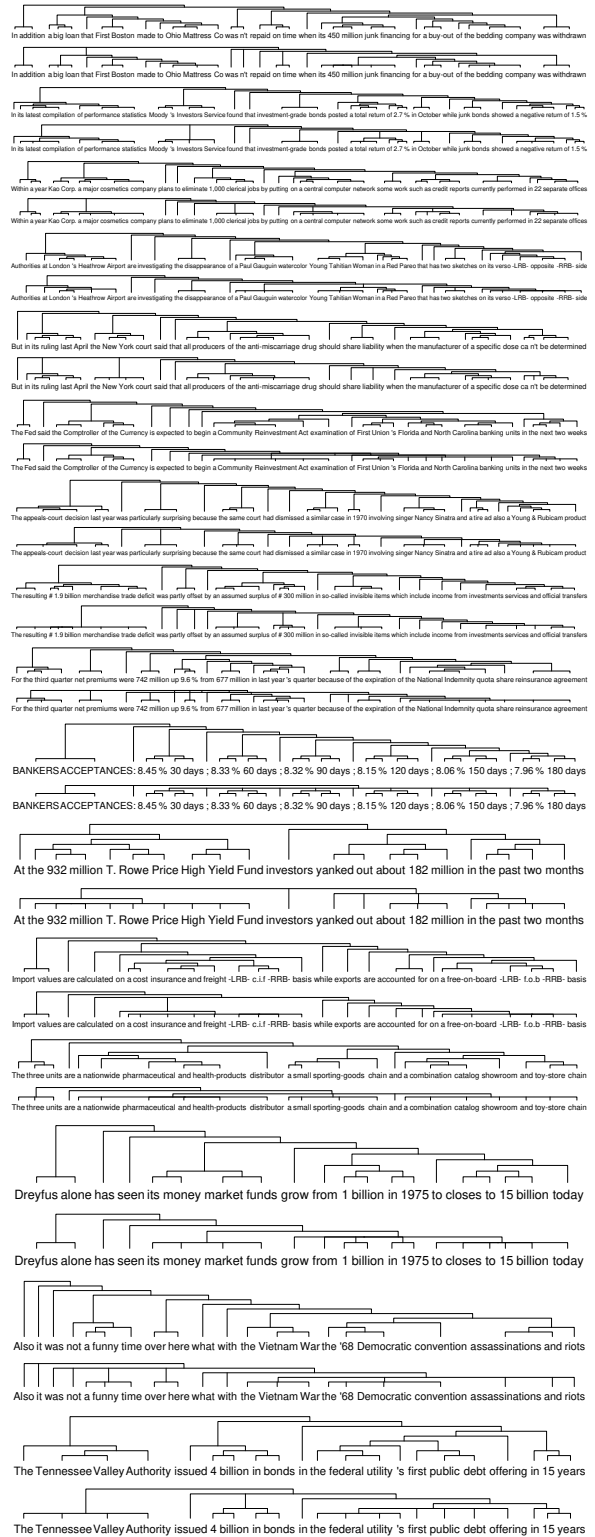 In addition a big loan that First Boston made to Ohio Mattress Co was n't repaid on time when its 450 million junk financing for a buy-out of the bedding company was withdrawn
In addition a big loan that First Boston made to Ohio Mattress Co was n't repaid on time when its 450 million junk financing for a buy-out of the bedding company was withdrawn
In its latest compilation of performance statistics Moody 's Investors Service found that investment-grade bonds posted a total return of 2.7 % in October while junk bonds showed a negative return of 1.5 %
In its latest compilation of performance statistics Moody 's Investors Service found that investment-grade bonds posted a total return of 2.7 % in October while junk bonds showed a negative return of 1.5 %
Within a year Kao Corp. a major cosmetics company plans to eliminate 1,000 clerical jobs by putting on a central computer network some work such as credit reports currently performed in 22 separate offices
Within a year Kao Corp. a major cosmetics company plans to eliminate 1,000 clerical jobs by putting on a central computer network some work such as credit reports currently performed in 22 separate offices
Authorities at London 's Heathrow Airport are investigating the disappearance of a Paul Gauguin watercolor Young Tahitian Woman in a Red Pareo that has two sketches on its verso -LRB- opposite -RRB- side
Authorities at London 's Heathrow Airport are investigating the disappearance of a Paul Gauguin watercolor Young Tahitian Woman in a Red Pareo that has two sketches on its verso -LRB- opposite -RRB- side
But in its ruling last April the New York court said that all producers of the anti-miscarriage drug should share liability when the manufacturer of a specific dose ca n't be determined
But in its ruling last April the New York court said that all producers of the anti-miscarriage drug should share liability when the manufacturer of a specific dose ca n't be determined
The Fed said the Comptroller of the Currency is expected to begin a Community Reinvestment Act examination of First Union 's Florida and North Carolina banking units in the next two weeks
The Fed said the Comptroller of the Currency is expected to begin a Community Reinvestment Act examination of First Union 's Florida and North Carolina banking units in the next two weeks
The appeals-court decision last year was particularly surprising because the same court had dismissed a similar case in 1970 involving singer Nancy Sinatra and a tire ad also a Young & Rubicam product
The appeals-court decision last year was particularly surprising because the same court had dismissed a similar case in 1970 involving singer Nancy Sinatra and a tire ad also a Young & Rubicam product
The resulting # 1.9 billion merchandise trade deficit was partly offset by an assumed surplus of # 300 million in so-called invisible items which include income from investments services and official transfers
The resulting # 1.9 billion merchandise trade deficit was partly offset by an assumed surplus of # 300 million in so-called invisible items which include income from investments services and official transfers
For the third quarter net premiums were 742 million up 9.6 % from 677 million in last year 's quarter because of the expiration of the National Indemnity quota share reinsurance agreement
For the third quarter net premiums were 742 million up 9.6 % from 677 million in last year 's quarter because of the expiration of the National Indemnity quota share reinsurance agreement
BANKERS ACCEPTANCES : 8.45 % 30 days ; 8.33 % 60 days ; 8.32 % 90 days ; 8.15 % 120 days ; 8.06 % 150 days ; 7.96 % 180 days
BANKERS ACCEPTANCES : 8.45 % 30 days ; 8.33 % 60 days ; 8.32 % 90 days ; 8.15 % 120 days ; 8.06 % 150 days ; 7.96 % 180 days
At the 932 million T. Rowe Price High Yield Fund investors yanked out about 182 million in the past two months
At the 932 million T. Rowe Price High Yield Fund investors yanked out about 182 million in the past two months
Import values are calculated on a cost insurance and freight -LRB- c.i.f -RRB- basis while exports are accounted for on a free-on-board -LRB- f.o.b -RRB- basis
Import values are calculated on a cost insurance and freight -LRB- c.i.f -RRB- basis while exports are accounted for on a free-on-board -LRB- f.o.b -RRB- basis
The three units are a nationwide pharmaceutical and health-products distributor a small sporting-goods chain and a combination catalog showroom and toy-store chain
The three units are a nationwide pharmaceutical and health-products distributor a small sporting-goods chain and a combination catalog showroom and toy-store chain
Dreyfus alone has seen its money market funds grow from 1 billion in 1975 to closes to 15 billion today
Dreyfus alone has seen its money market funds grow from 1 billion in 1975 to closes to 15 billion today
Also it was not a funny time over here what with the Vietnam War the '68 Democratic convention assassinations and riots
Also it was not a funny time over here what with the Vietnam War the '68 Democratic convention assassinations and riots
The Tennessee Valley Authority issued 4 billion in bonds in the federal utility 's first public debt offering in 15 years
The Tennessee Valley Authority issued 4 billion in bonds in the federal utility 's first public debt offering in 15 years